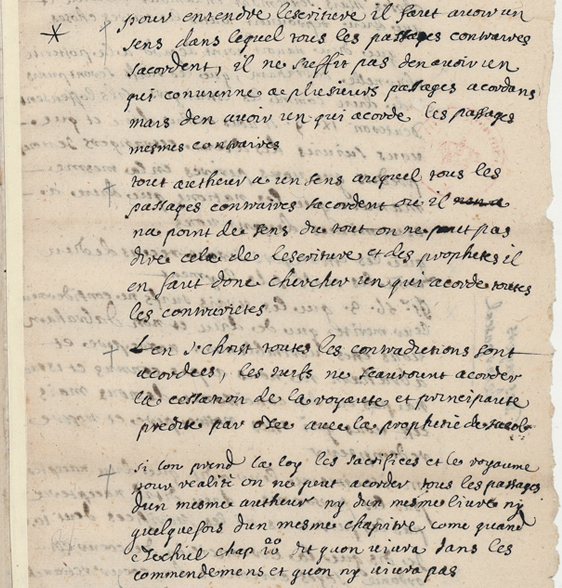 pour entendre lescriture il faut avoir un
sens dans lequel tous les passages contraires
sacordent, il ne suffit pas den avoir un
qui convienne a plusieurs passages acordans
mais den avoir un qui acorde les passages
mesmes contraires
tout autheur a un sens auquel tous les
passages contraires sacordent ou il
na point de sens du tout on ne peut pas
dire cela de lescriture et des prophetes il
en faut donc chercher un qui acorde toutes
les contrarietes
en J-christ toutes les contradictions sont
acordees, les juifs ne scauroient acorder
la cessation de la royauté et principauté
predite par osee avec la prophetie de Jacob
Si lon prend la loy les sacrifices et le royaume
pour realité on ne peut acorder tous les passages
dun mesme autheur ny dun mesme livre ny
quelquefois dun mesme chapitre come quand
Ezechiel chap 20 dit quon vivra dans les
commendemens et quon ny vivra pas